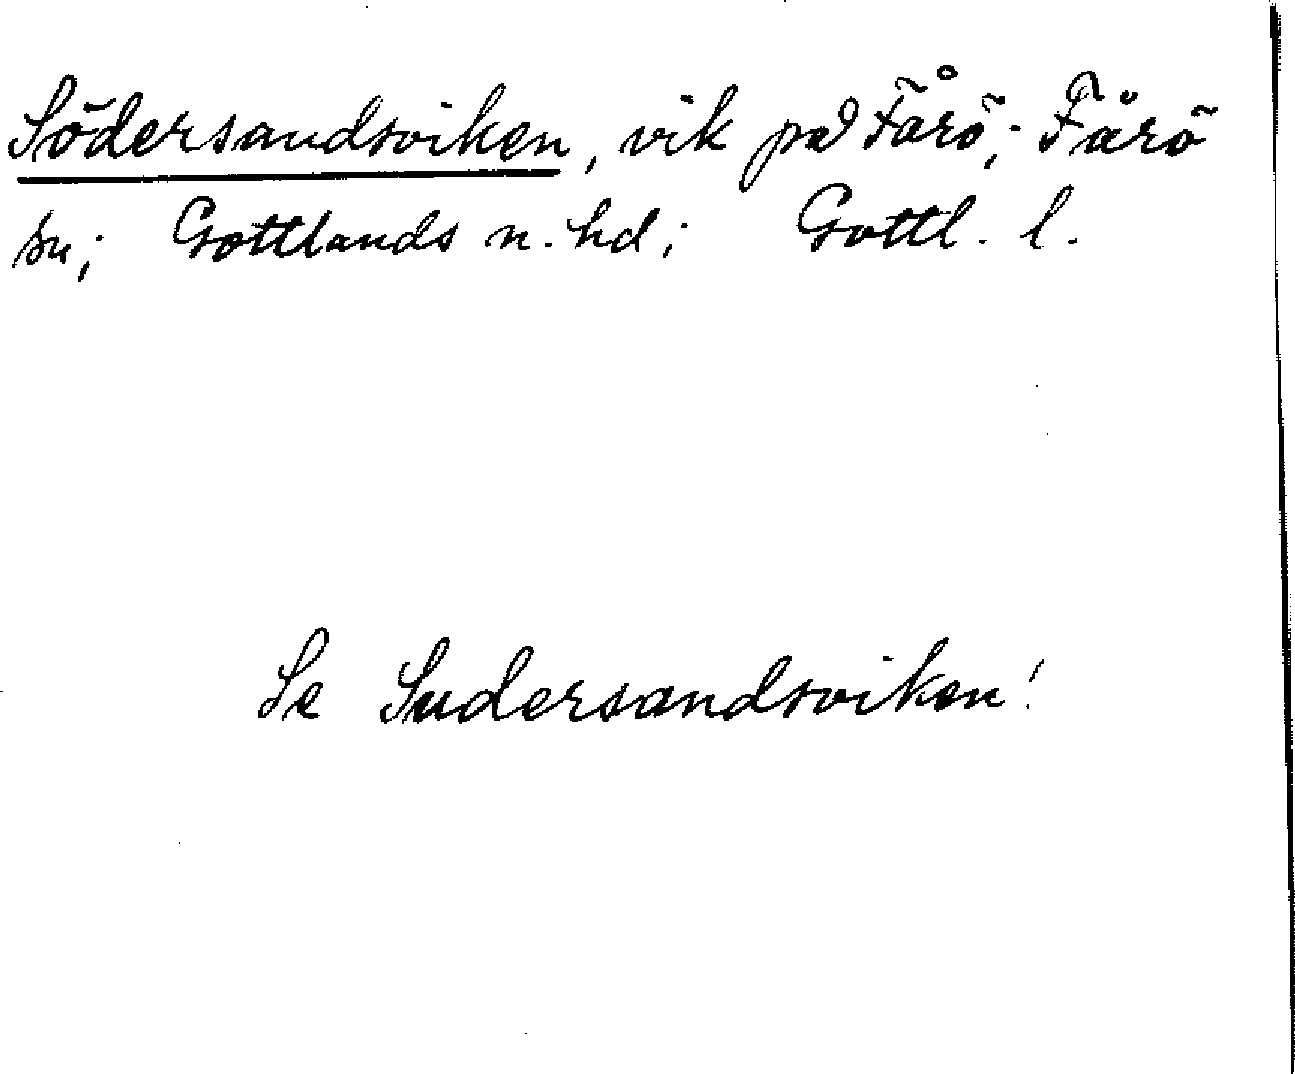 Södersandsviken, vik på Fårö; Fårö
sn; Gottlands n. hd; Gottl. l.
Se Sudersandsviken!